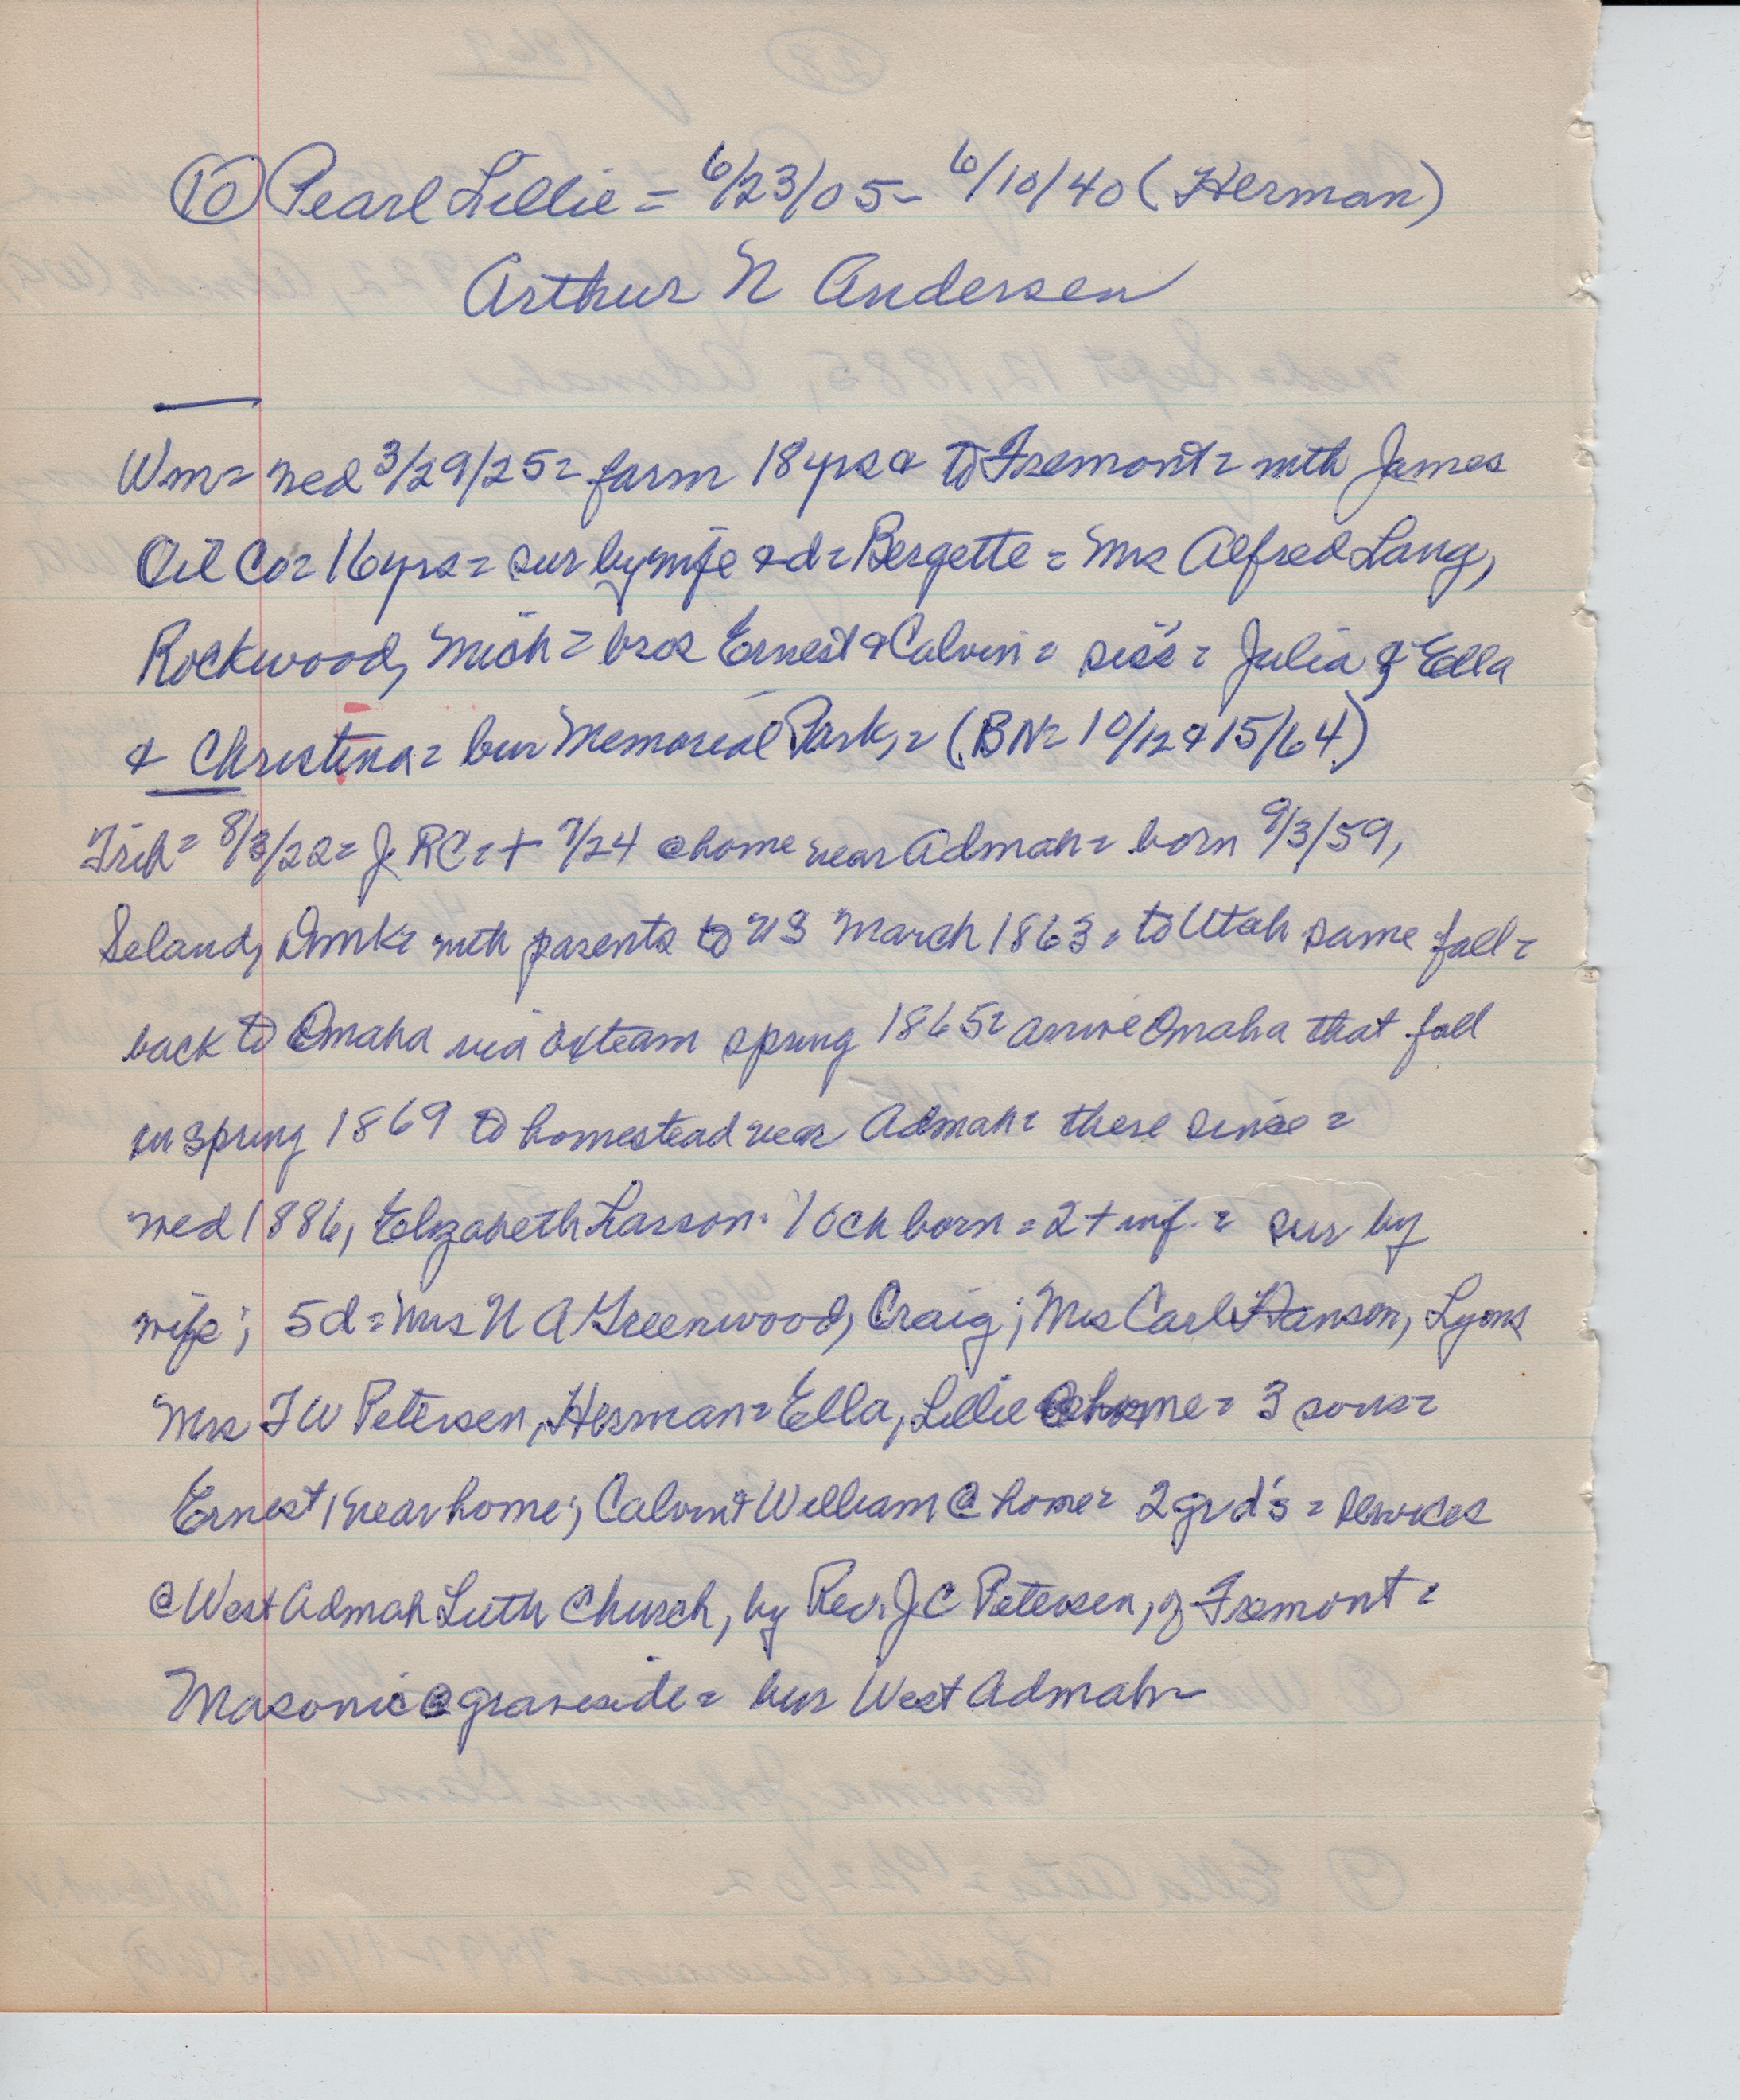 ⑩ Pearl Lillie = 6/23/05 - 6/10/40 (Herman)
Arthur N Andersen
Wm = med 3/29/25 = farm 18 yrs & to Fremont = with James
Oil Co = 16 yrs = sur by wife & d = Bergette = Mrs Alfred Lang,
Rockwood, Mich = bros Ernest & Calvin = sis's = Julia & Ella
& Christina = bur Memorial Park, = (BN = 10/12 & 15/64)
8/3/22 = J RC = + 7/24 @ home near Admah = born 9/3/59,
Seland, Dmk = with parents to US March 1863 = to Utah same fall =
back to Omaha via oxteam spring 1865 = arrive Omaha that fall
in spring 1869 to homestead near Admah = there since =
med 1886, Elizabeth Larson. 10 ch born = 2 + inf. = sur by
wife; 5d = Mrs N A Greenwood, Craig; Mrs Carl Hanson, Lyons
Mrs F W Petersen, Herman = Ella, Lillie @ home = 3 sons =
Ernest, near home; Calvin & William @ home = 2 grd's = services
@ West Admah Luth Church, by Rev. J C Petersen, of Fremont =
Masonic @ graveside = bur West Admah